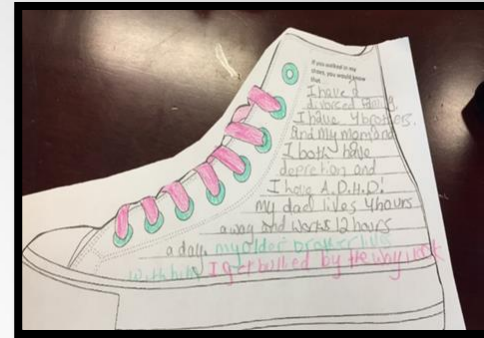 If you walked in my
shoes, you would know
that
I have a
divorced family.
I have 4 brothers.
and my mom and
I both have
depretion and
I have A.D.H.D!
my dad lives 4 hours
away and works 12 hours
a day. my older brother lives
with him. I get bullied by the way i look